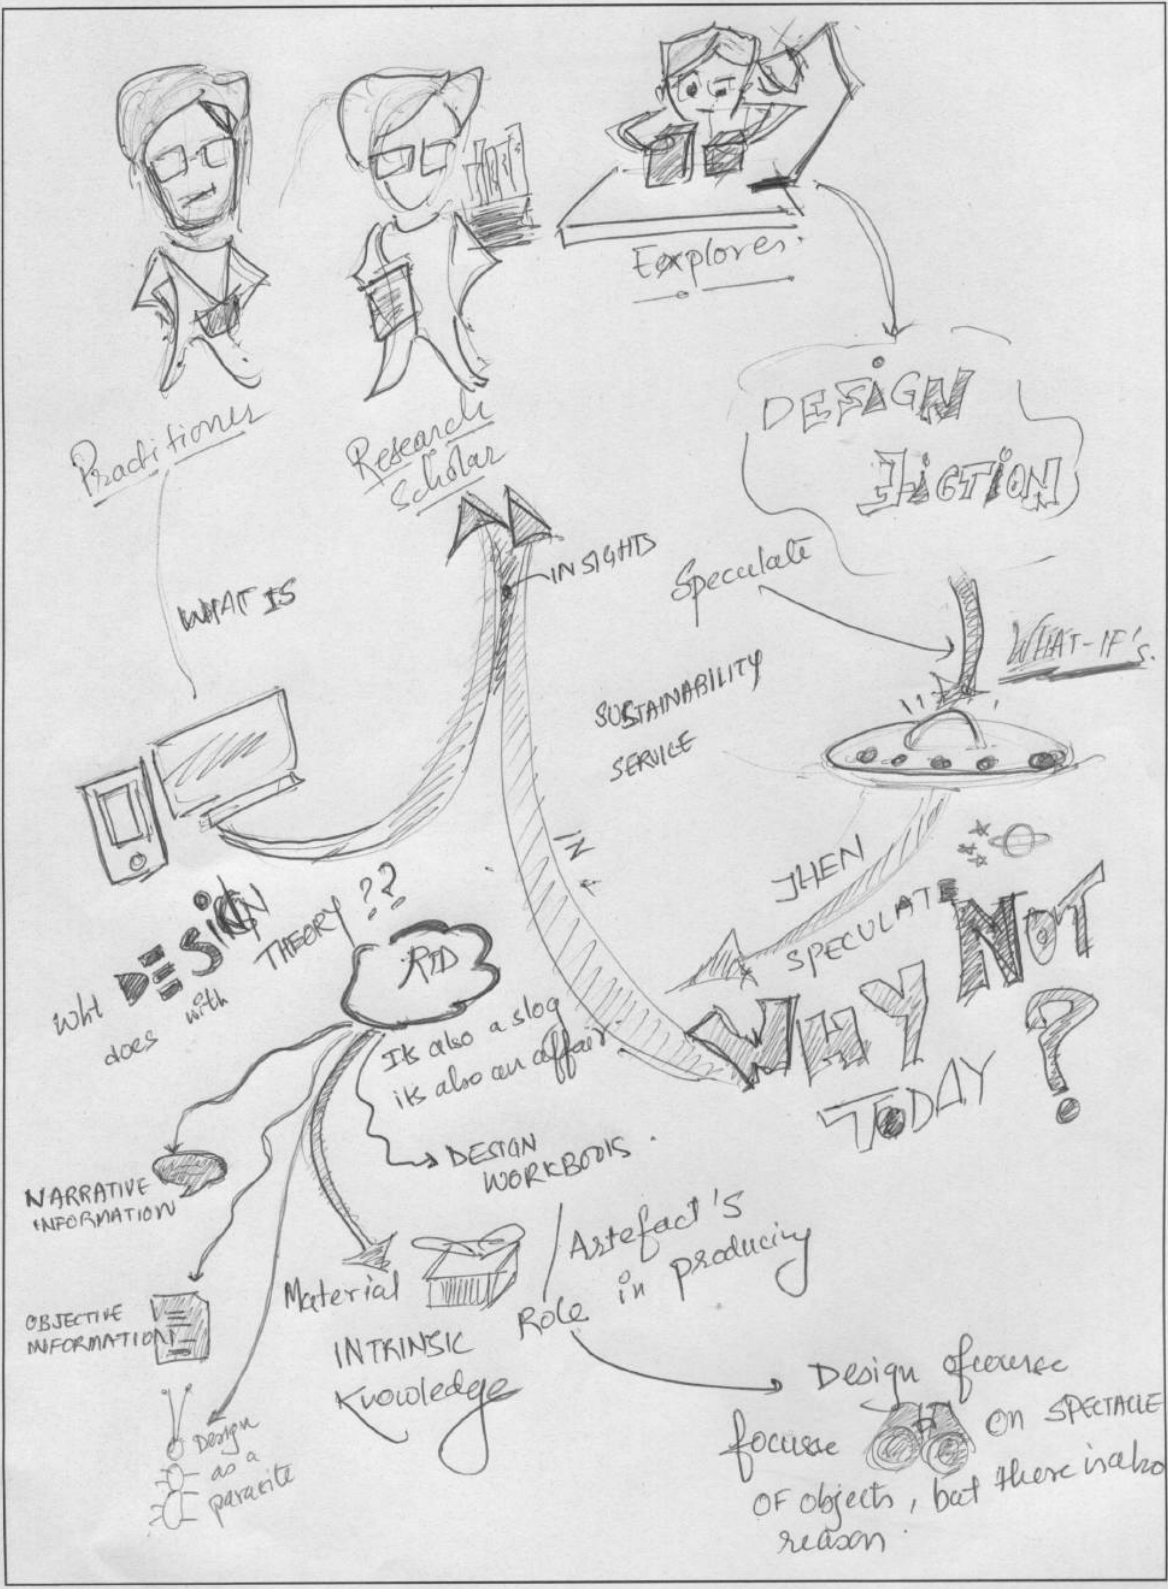 Practitioner
Research
Scholar
Eexplores.
DESiGN
FiCTiON
INSIGHTS
Speculate
WHAT IS
WHAT-IF's.
SUSTAINABILITY
SERVICE
IN
THEN
SPECULATE
WHY NOT
TODAY ?
Wht DESiGN
does with
THEORY ??
RTD
Its also a slog
its also an affair.
DESIGN
WORKBOOKS.
NARRATIVE
INFORMATION
OBJECTIVE
INFORMATION
Design
as a
parasite
Material
INTRINSIC
Knowledge
Role
Artefact's
in producing
Design ofcourse
focusse on SPECTACLE
OF objects, but there is also
reason.